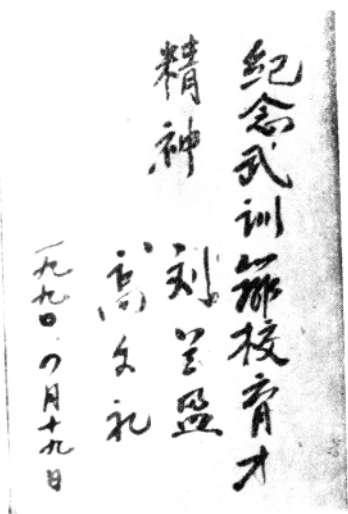 纪念武训办校育才
精神
刘兰盈
高文礼
一九九〇.四月十九日